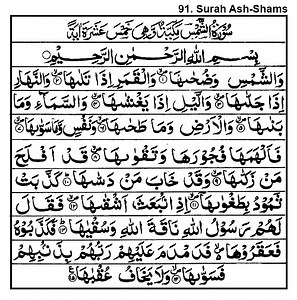 91. Surah Ash-Shams
سُوْرَةُ الشَّمْسِ مَكِّيَّةٌ وَّهِيَ خَمْسَ عَشَرَةَ اٰيَةً
بِسْمِ اللّٰهِ الرَّحْمٰنِ الرَّحِيْمِ
وَالشَّمْسِ وَضُحٰىهَا ۝١ وَالْقَمَرِ اِذَا تَلٰىهَا ۝٢ وَالنَّهَارِ
اِذَا جَلّٰىهَا ۝٣ وَالَّيْلِ اِذَا يَغْشٰىهَا ۝٤ وَالسَّمَآءِ وَمَا
بَنٰىهَا ۝٥ وَالْاَرْضِ وَمَا طَحٰىهَا ۝٦ وَنَفْسٍ وَّمَا سَوّٰىهَا ۝٧
فَاَلْهَمَهَا فُجُوْرَهَا وَتَقْوٰىهَا ۝٨ قَدْ اَفْلَحَ
مَنْ زَكّٰىهَا ۝٩ وَقَدْ خَابَ مَنْ دَسّٰىهَا ۝١٠ كَذَّبَتْ
ثَمُوْدُ بِطَغْوٰىهَا ۝١١ اِذِ انْۢبَعَثَ اَشْقٰىهَا ۝١٢ فَقَالَ
لَهُمْ رَسُوْلُ اللّٰهِ نَاقَةَ اللّٰهِ وَسُقْيٰهَا ۝١٣ فَكَذَّبُوْهُ
فَعَقَرُوْهَا فَدَمْدَمَ عَلَيْهِمْ رَبُّهُمْ بِذَنْۢبِهِمْ
فَسَوّٰىهَا ۝١٤ وَلَا يَخَافُ عُقْبٰهَا ۝١٥